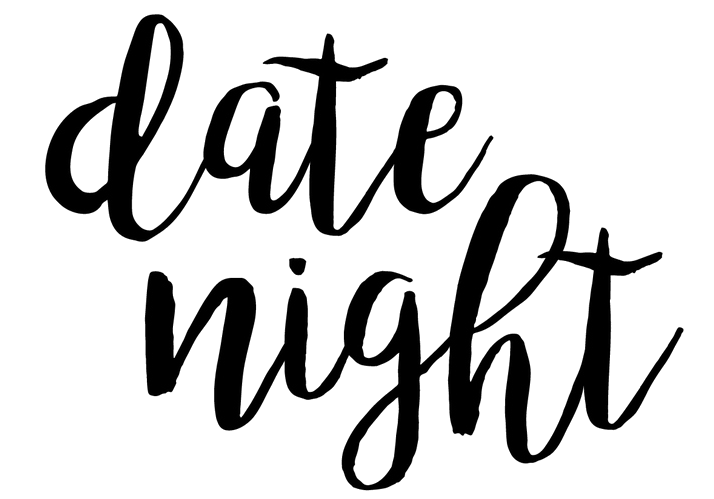 date
night